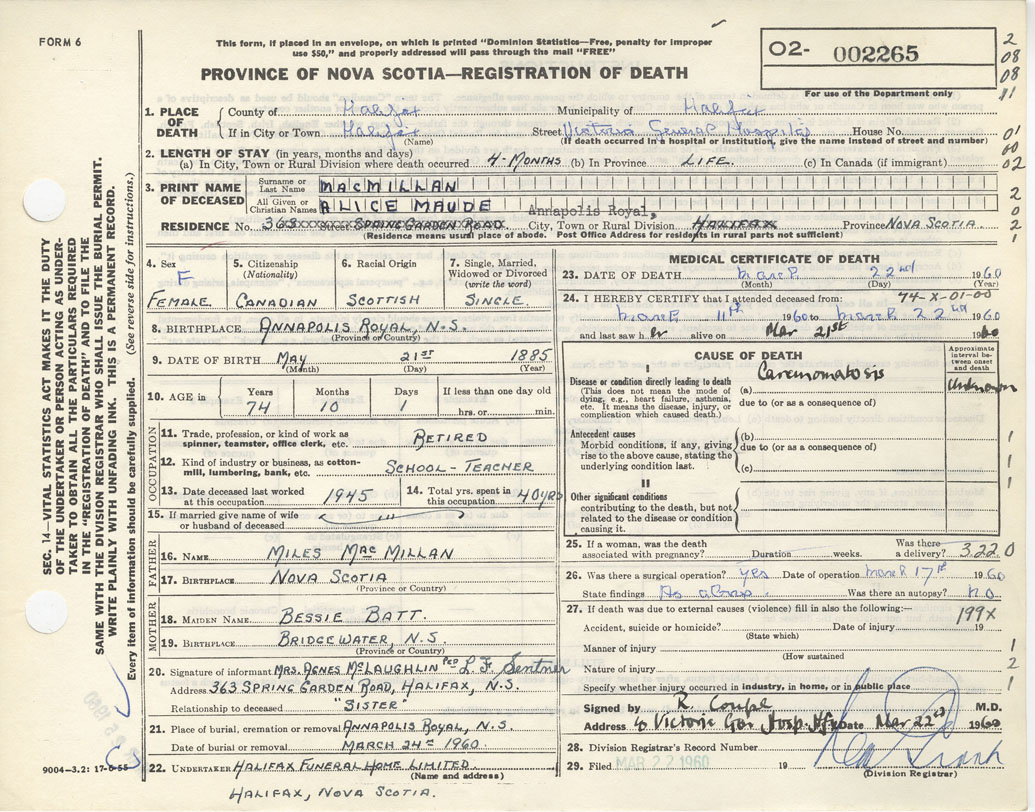 FORM 6
This form, if placed in an envelope, on which is printed "Dominion Statistics—Free, penalty for improper
use $50," and properly addressed will pass through the mail "FREE"
PROVINCE OF NOVA SCOTIA—REGISTRATION OF DEATH
O2- 002265
For use of the Department only
2
08
08
11
1. PLACE OF DEATH
County of Halifax Municipality of Halifax
If in City or Town Halifax Street Victoria General Hospital House No.
(Name) (If death occurred in a hospital or institution, give the name instead of street and number)
01
00
02
2. LENGTH OF STAY (in years, months and days)
(a) In City, Town or Rural Division where death occurred 4 MONTHS (b) In Province LIFE. (c) In Canada (if immigrant)
3. PRINT NAME OF DECEASED
Surname or Last Name MACMILLAN
All Given or Christian Names ALICE MAUDE
Annapolis Royal,
RESIDENCE No. 363 Street SPRING GARDEN ROAD City, Town or Rural Division HALIFAX Province NOVA SCOTIA
(Residence means usual place of abode. Post Office Address for residents in rural parts not sufficient)
2
0
2
1
4. Sex F FEMALE.
5. Citizenship (Nationality) CANADIAN
6. Racial Origin SCOTTISH
7. Single, Married, Widowed or Divorced (write the word) SINGLE.
8. BIRTHPLACE ANNAPOLIS ROYAL, N.S.
(Province or Country)
9. DATE OF BIRTH MAY 21ST 1885
(Month) (Day) (Year)
10. AGE in Years 74 Months 10 Days 1 If less than one day old hrs. or min.
OCCUPATION
11. Trade, profession, or kind of work as spinner, teamster, office clerk, etc. RETIRED
12. Kind of industry or business, as cotton-mill, lumbering, bank, etc. SCHOOL-TEACHER
13. Date deceased last worked at this occupation 1945
14. Total yrs. spent in this occupation 40 YRS
15. If married give name of wife or husband of deceased
FATHER
16. NAME MILES MACMILLAN
17. BIRTHPLACE NOVA SCOTIA
(Province or Country)
MOTHER
18. MAIDEN NAME BESSIE BATT.
19. BIRTHPLACE BRIDGEWATER, N.S.
(Province or Country)
20. Signature of informant MRS. AGNES MCLAUGHLIN PER L. F. Sentner
Address 363 SPRING GARDEN ROAD, HALIFAX, N.S.
Relationship to deceased "SISTER"
21. Place of burial, cremation or removal ANNAPOLIS ROYAL, N.S.
Date of burial or removal MARCH 24TH 1960.
22. UNDERTAKER HALIFAX FUNERAL HOME LIMITED.
(Name and address)
HALIFAX, NOVA SCOTIA.
9004-3.2: 17-6-55
MEDICAL CERTIFICATE OF DEATH
23. DATE OF DEATH March 22nd 1960
(Month) (Day) (Year)
24. I HEREBY CERTIFY that I attended deceased from: 74-X-01-00
March 11th 1960 to March 22nd 1960
and last saw her alive on Mar 21st 1960
CAUSE OF DEATH
Approximate interval between onset and death
I
Disease or condition directly leading to death
(This does not mean the mode of dying, e.g., heart failure, asthenia, etc. It means the disease, injury, or complication which caused death.)
(a) Carcinomatosis Unknown
due to (or as a consequence of)
Antecedent causes
Morbid conditions, if any, giving rise to the above cause, stating the underlying condition last.
(b)
due to (or as a consequence of)
(c)
1
1
1
II
Other significant conditions contributing to the death, but not related to the disease or condition causing it.
25. If a woman, was the death associated with pregnancy? Duration weeks. Was there a delivery? 3220
26. Was there a surgical operation? yes Date of operation March 17th 1960
State findings As above. Was there an autopsy? no
27. If death was due to external causes (violence) fill in also the following:— 199X
Accident, suicide or homicide? Date of injury 19
(State which)
Manner of injury 1
(How sustained)
Nature of injury 2
Specify whether injury occurred in industry, in home, or in public place 1
Signed by R. Coupe M.D.
Address c/o Victoria Gen. Hosp. Hfx Date Mar 22nd 1960
28. Division Registrar's Record Number
29. Filed MAR 22 1960 19
(Division Registrar)
SEC. 14—VITAL STATISTICS ACT MAKES IT THE DUTY
OF THE UNDERTAKER OR PERSON ACTING AS UNDER-
TAKER TO OBTAIN ALL THE PARTICULARS REQUIRED
IN THE "REGISTRATION OF DEATH" AND TO FILE THE
SAME WITH THE DIVISION REGISTRAR WHO SHALL ISSUE THE BURIAL PERMIT.
WRITE PLAINLY WITH UNFADING INK. THIS IS A PERMANENT RECORD.
Every item of information should be carefully supplied. (See reverse side for instructions.)